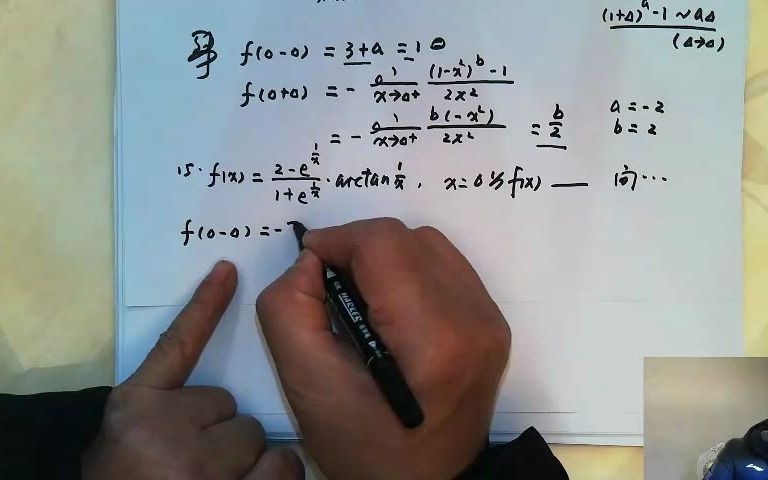 (1+Δ)^a - 1 ~ aΔ
(Δ→0)
f(0-0) = 3+a = 1
f(0+0) = - lim x→0+ (1-x²)^b - 1 / 2x²
= - lim x→0+ b(-x²) / 2x² = b/2
a = -2
b = 2
15. f(x) = 2-e^(1/x) / 1+e^(1/x) · arctan 1/x, x=0 为 f(x) —— 间…
f(0-0) = -
MARKER